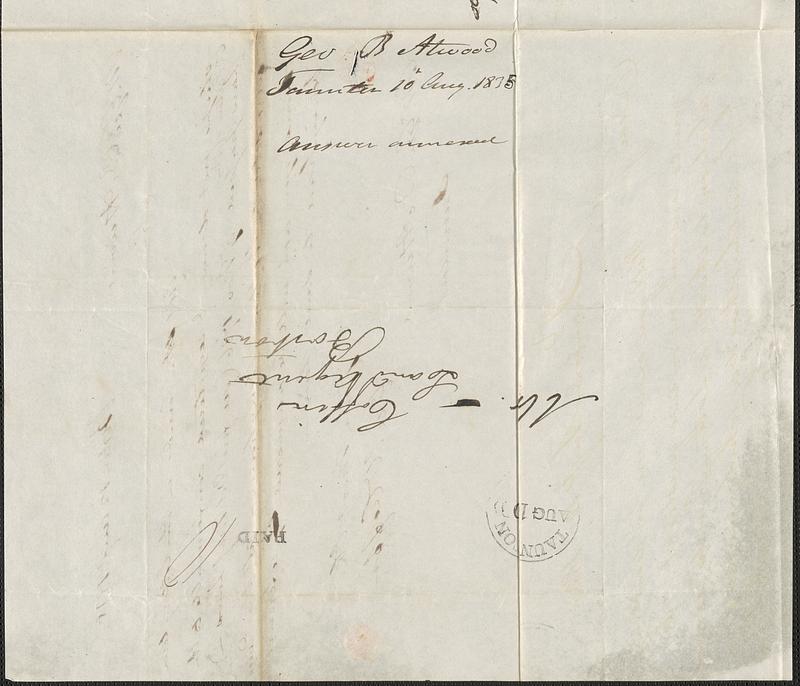 Geo B Atwood
Taunton 10 Aug. 1835
Answer annexed
Mr. – Coffin
Land Agent
Boston
PAID
TAUNTON
AUG